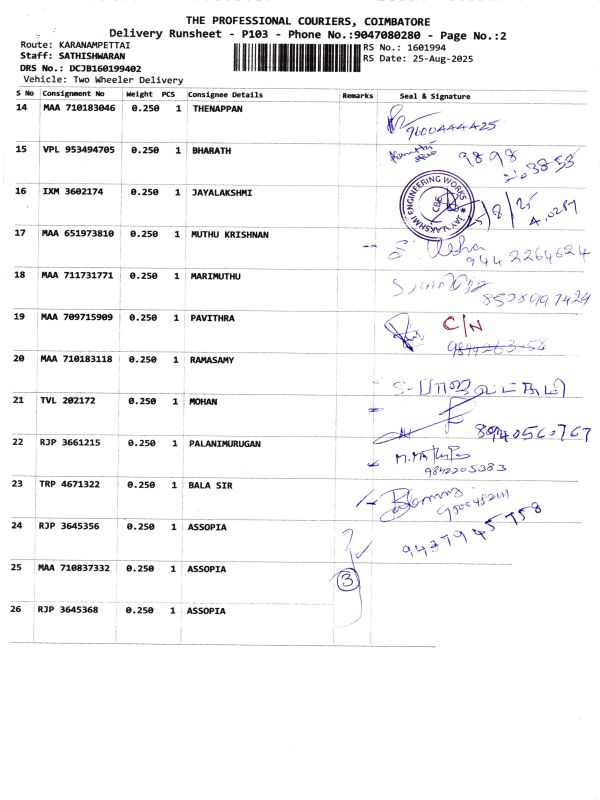 THE PROFESSIONAL COURIERS, COIMBATORE
Delivery Runsheet - P103 - Phone No.:9047080280 - Page No.:2
Route: KARANAMPETTAI
RS No.: 1601994
Staff: SATHISHWARAN
RS Date: 25-Aug-2025
DRS No.: DCJB160199402
Vehicle: Two Wheeler Delivery
S No Consignment No Weight PCS Consignee Details Remarks Seal & Signature
14 MAA 710183046 0.250 1 THENAPPAN
9600444425
15 VPL 953494705 0.250 1 BHARATH
9898
16 IXM 3602174 0.250 1 JAYALAKSHMI
JAYLAKSHMI ENGINEERING WORKS
CBE
25/8/25
17 MAA 651973810 0.250 1 MUTHU KRISHNAN
Usha
9442264624
18 MAA 711731771 0.250 1 MARIMUTHU
19 MAA 709715909 0.250 1 PAVITHRA
C/N
20 MAA 710183118 0.250 1 RAMASAMY
21 TVL 202172 0.250 1 MOHAN
8940560767
22 RJP 3661215 0.250 1 PALANIMURUGAN
9842205383
23 TRP 4671322 0.250 1 BALA SIR
24 RJP 3645356 0.250 1 ASSOPIA
25 MAA 710837332 0.250 1 ASSOPIA
3
26 RJP 3645368 0.250 1 ASSOPIA